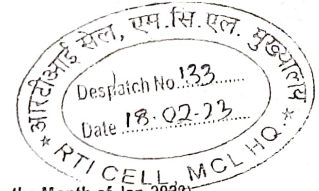 आरटीआई सेल, एम.सी.एल. मुख्यालय
Despatch No.133
Date 18.02.23
* RTI CELL, MCL HQ. *
the Month of Jan